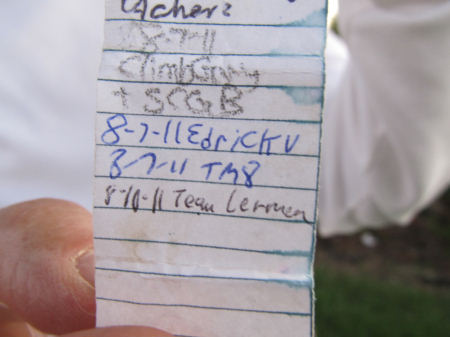 cachers
8-7-11
ClimbGuy
+ SCGB
8-7-11 EdricKTV
8-7-11 TM8
8-10-11 Team Lermen